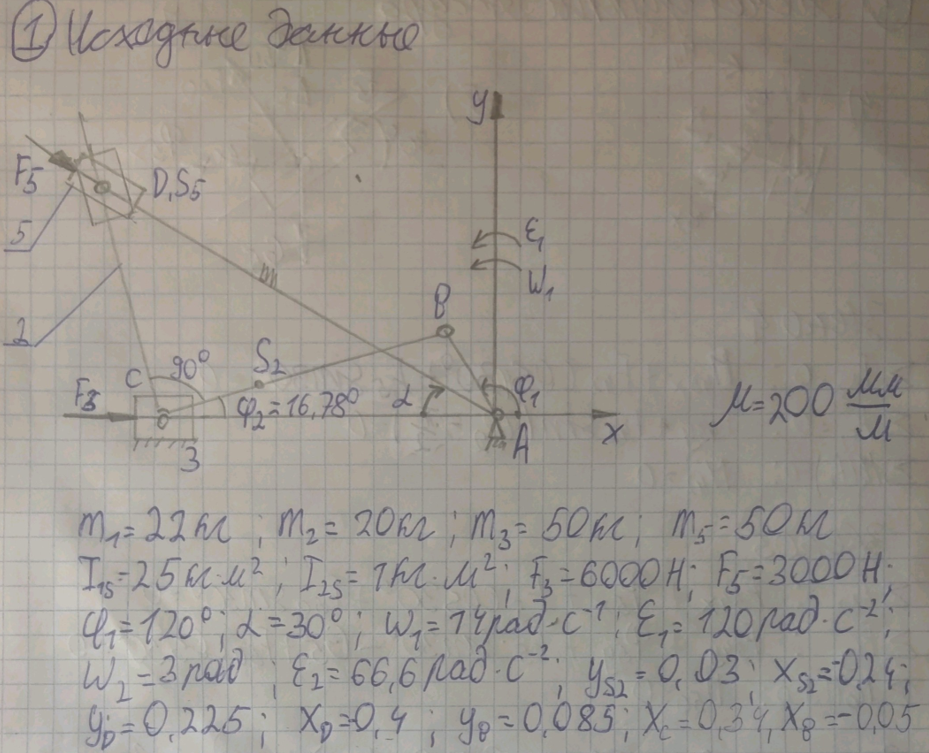 ① Исходные данные
y
F5
D,S5
5
ε1
ω1
B
2
C 90° S2
F3
φ2=16,78° α φ1
A x
3
M=200 мм/м
m1=22кг ; m2=20кг ; m3=50кг ; m5=50кг
I1S=25кг·м² ; I2S=1кг·м² ; F3=6000Н ; F5=3000Н ;
φ1=120° ; α=30° ; ω1=14рад·с⁻¹ ; ε1=120рад·с⁻² ;
ω2=3рад ; ε2=66,6рад·с⁻² ; yS2=0,03 ; xS2=-0,24 ;
yD=0,225 ; xD=-0,4 ; yB=0,085 ; xC=0,34 , xB=-0,05